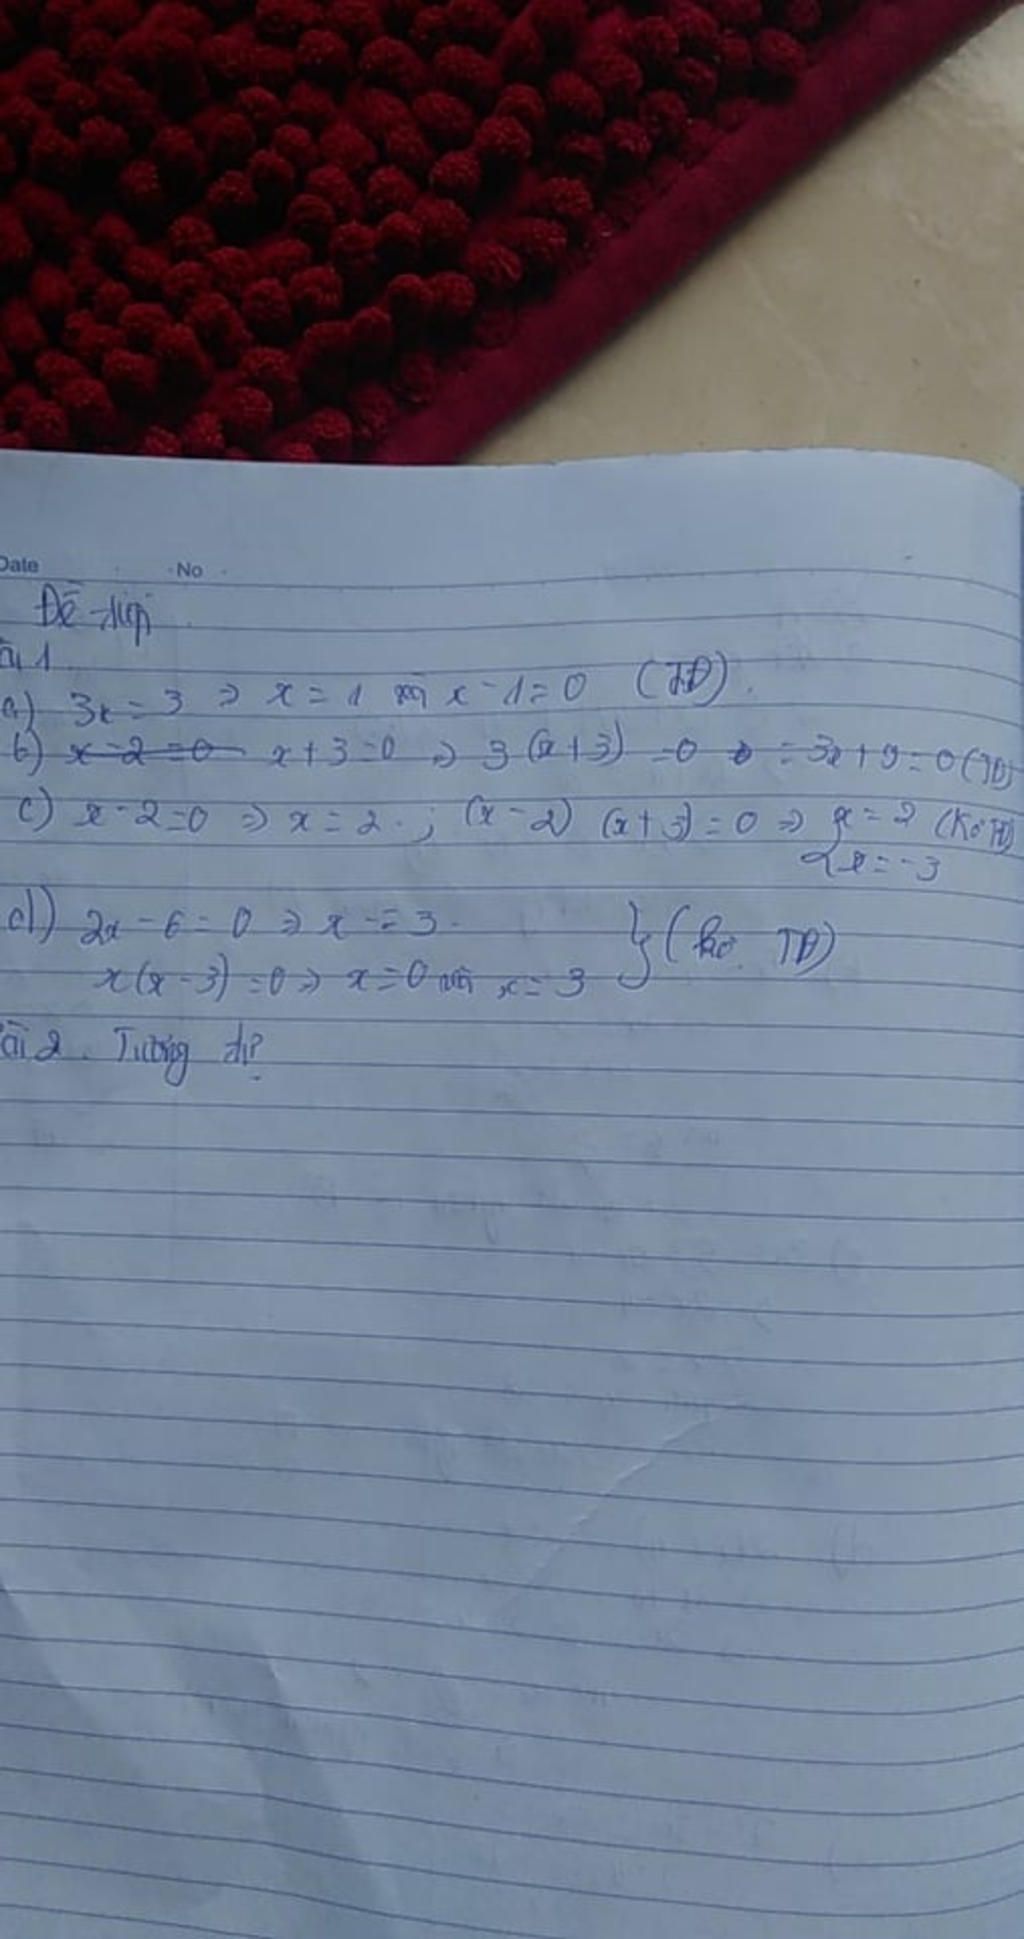 Date No
Đề
ài 1
a) 3x = 3 => x = 1 và x - 1 = 0 (TĐ).
b) x - 2 = 0 x + 3 = 0 => 3 (x + 3) = 0 = 3x + 9 = 0 (TĐ)
c) x - 2 = 0 => x = 2 . ; (x - 2) (x + 3) = 0 => x = 2 (Ko TĐ)
x = -3
d) 2x - 6 = 0 => x = 3 .
x(x - 3) = 0 => x = 0 và x = 3 } (ko TĐ)
ài 2. Tương tự